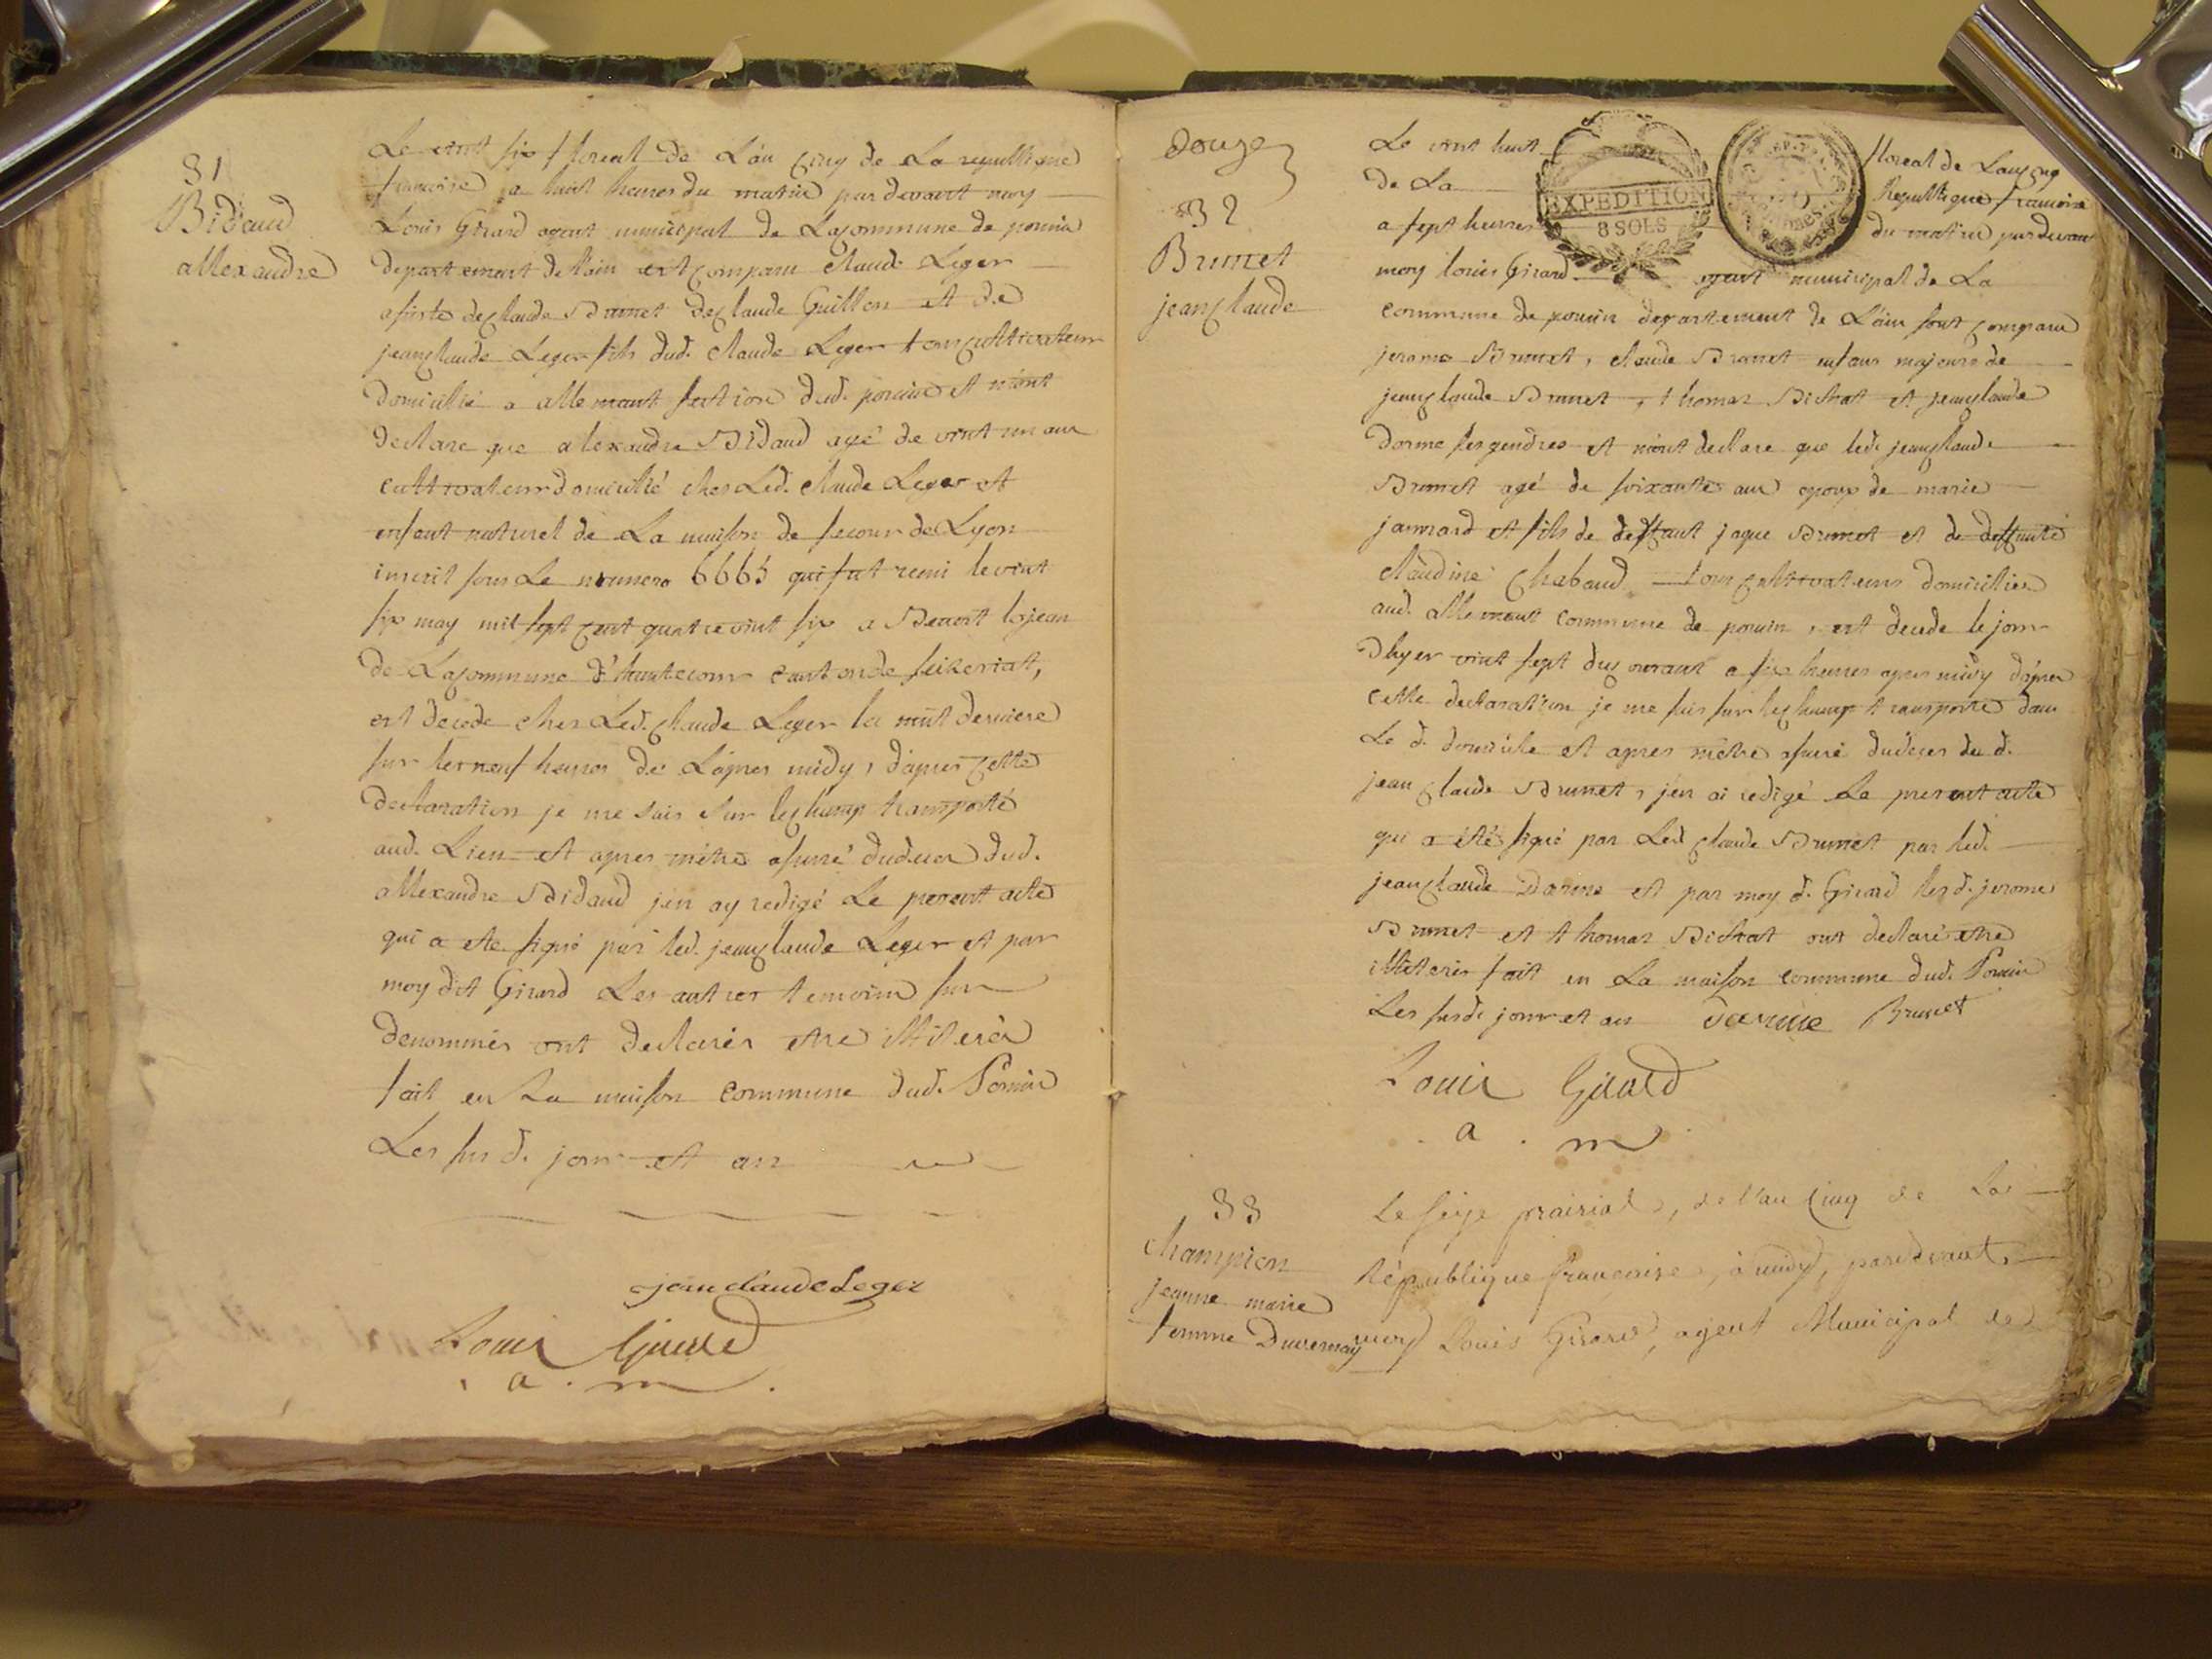 31
Bidaud
allexandre
Le vint six floreal de L'an cinq de La republique
francaise a huit heures du matin par devant moy
Louis Girard agent municipal de Lacommune de poncin
departement de l'ain est comparu claude Leger
asisté declaude Brunet declaude Guillon et de
jeanclaude Leger fils dud. claude Leger tous cultivateurs
domicillié a allemant section dud. poncin et m'ont
declare que alexandre Bidaud agé de vint un ans
cultivateur domicillié ches Led. claude Leger et
enfant naturel de La maison de secour de Lyon
inscrit sous Le numero 6665 qui fut remi le vint
six may mil sept cent quatre vint six a Benoit lojean
de Lacommune d'hautecour canton de seizeriat,
est decede ches Led. claude Leger la nuit derniere
sur les neuf heures de L'apres midy, d'apres cette
declaration je me suis sur lechamp transporté
aud. Lieu et apres m'etre asuré dudeces dud.
allexandre Bidaud jen ay redigé Le present acte
qui a ete signé par led. jeanclaude Leger et par
moy dit Girard Les autres temoins sur
denommés ont declarés etre illiterés
fait en La maison commune dud. Poncin
Les sus d. jour et an
jean claude Leger
Louis Girard
a . m .
douze
32
Brunet
jeanclaude
Le vint huit floreal de L'ancinq
EXPEDITION
8 SOLS
de La Republique francoise
a sept heures du matin pardevant
moy louis Girard agent municipal de La
commune de poncin departement de L'ain sont comparu
jerome Brunet, claude Brunet enfans majeurs de
jeanclaude Brunet, thomas Bichat et jeanclaude
Darme ses gendres et m'ont declare que led. jeanclaude
Brunet agé de soixante ans epoux de marie
jannard et fils de deffunt jaque Brunet et de deffunte
claudine chabaud tous cultivateurs domicilies
aud. allemant commune de poncin, est decede le jour
d'hyer vint sept du courant a six heures apres midy d'apres
cette declaration je me suis sur lechamp transporté dans
Le d. domicile et apres m'etre asuré dudeces du d.
jean claude Brunet, j'en ai redigé Le present acte
qui a été signé par Led claude Brunet par led.
jeanclaude Darme et par moy d. Girard les d. jerome
Brunet et thomas Bichat ont declaré etre
illiteres fait en La maison commune dud. Poncin
Les susd. jour et an darme Brunet
Louis Girard
. a . m
33
champion
jeanne marie
femme Duvernay
Le seize prairial, de l'an Cinq de La
République francaise, à midy, pardevant
moy Louis Girard, agent Municipal de